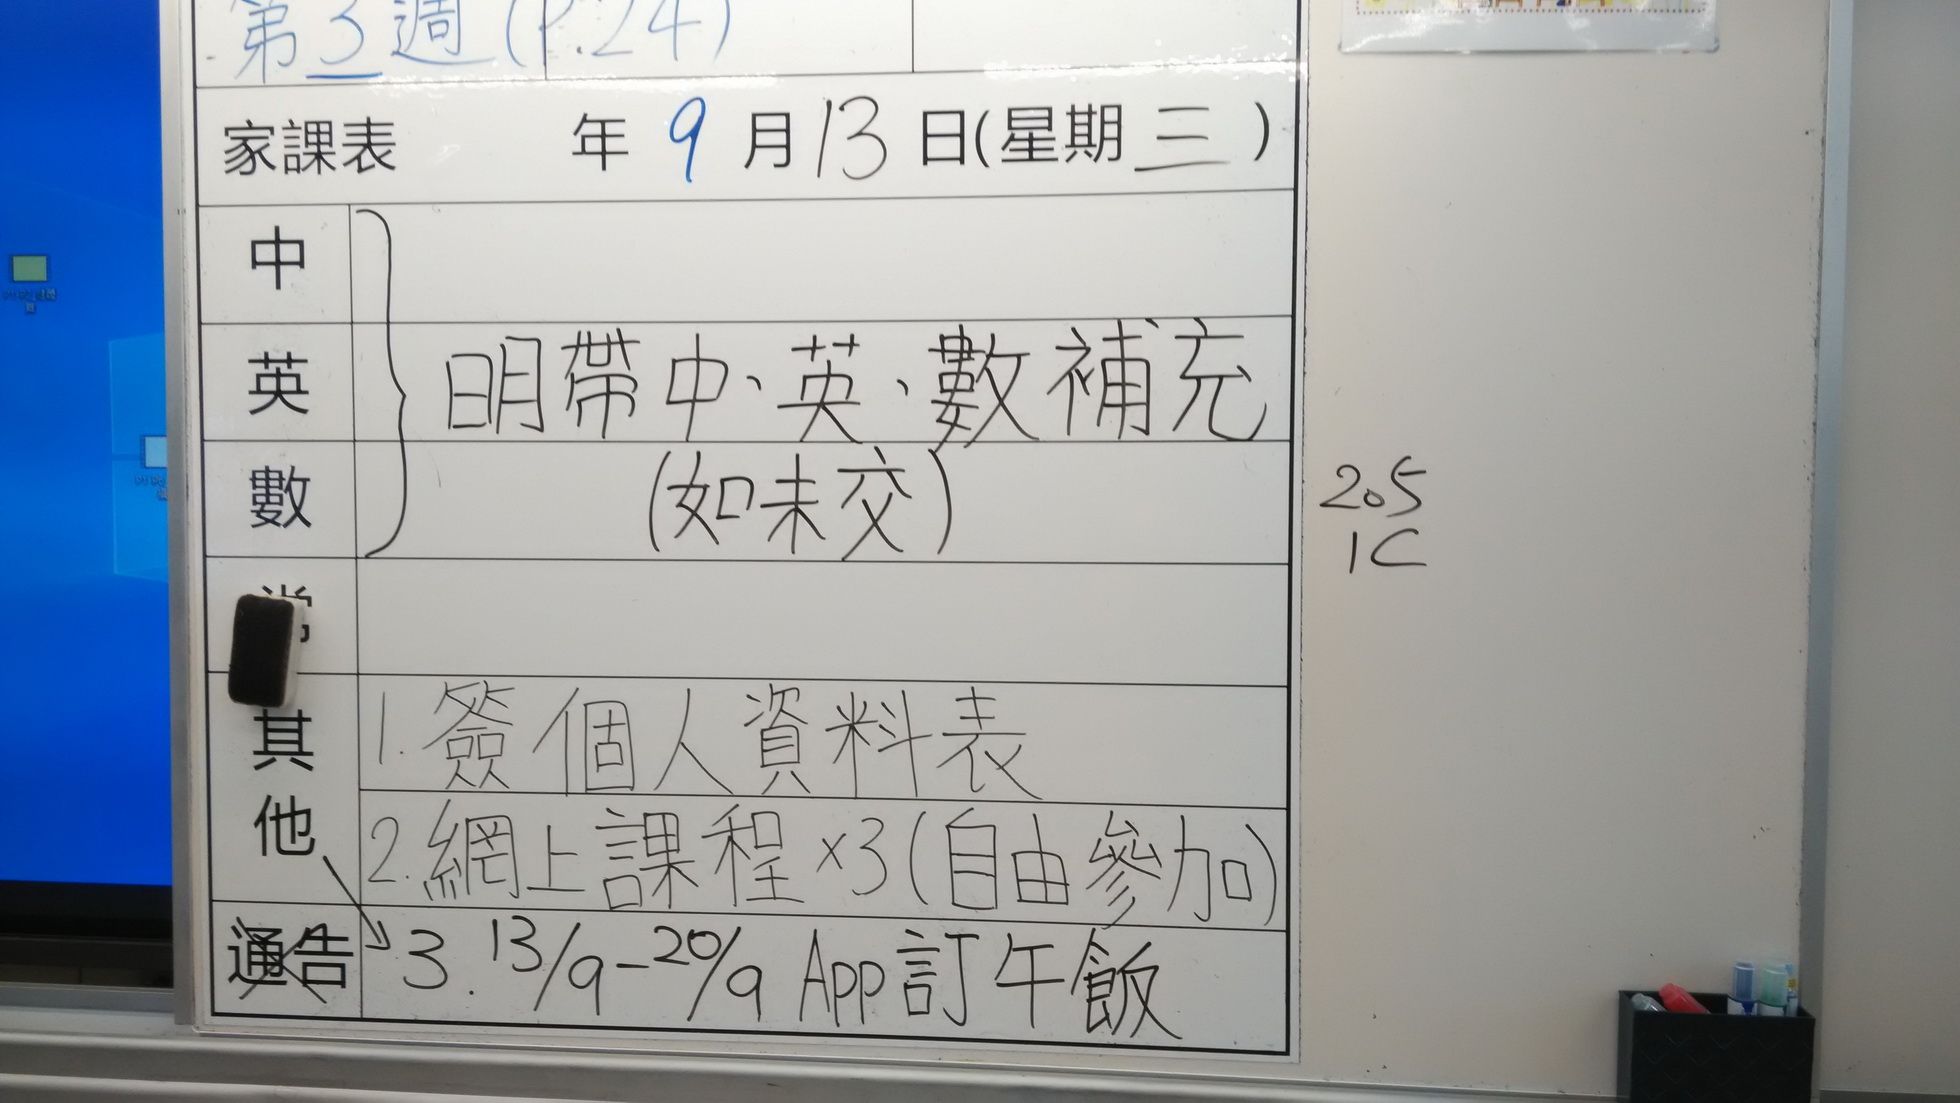 第3週(P.24)
家課表 年 9 月 13 日(星期 三 )
中
英 明帶中、英、數補充
數 (如未交)
常
其他
1. 簽個人資料表
2. 網上課程 ×3 (自由參加)
通告 3. 13/9-20/9 App訂午飯
205
1C